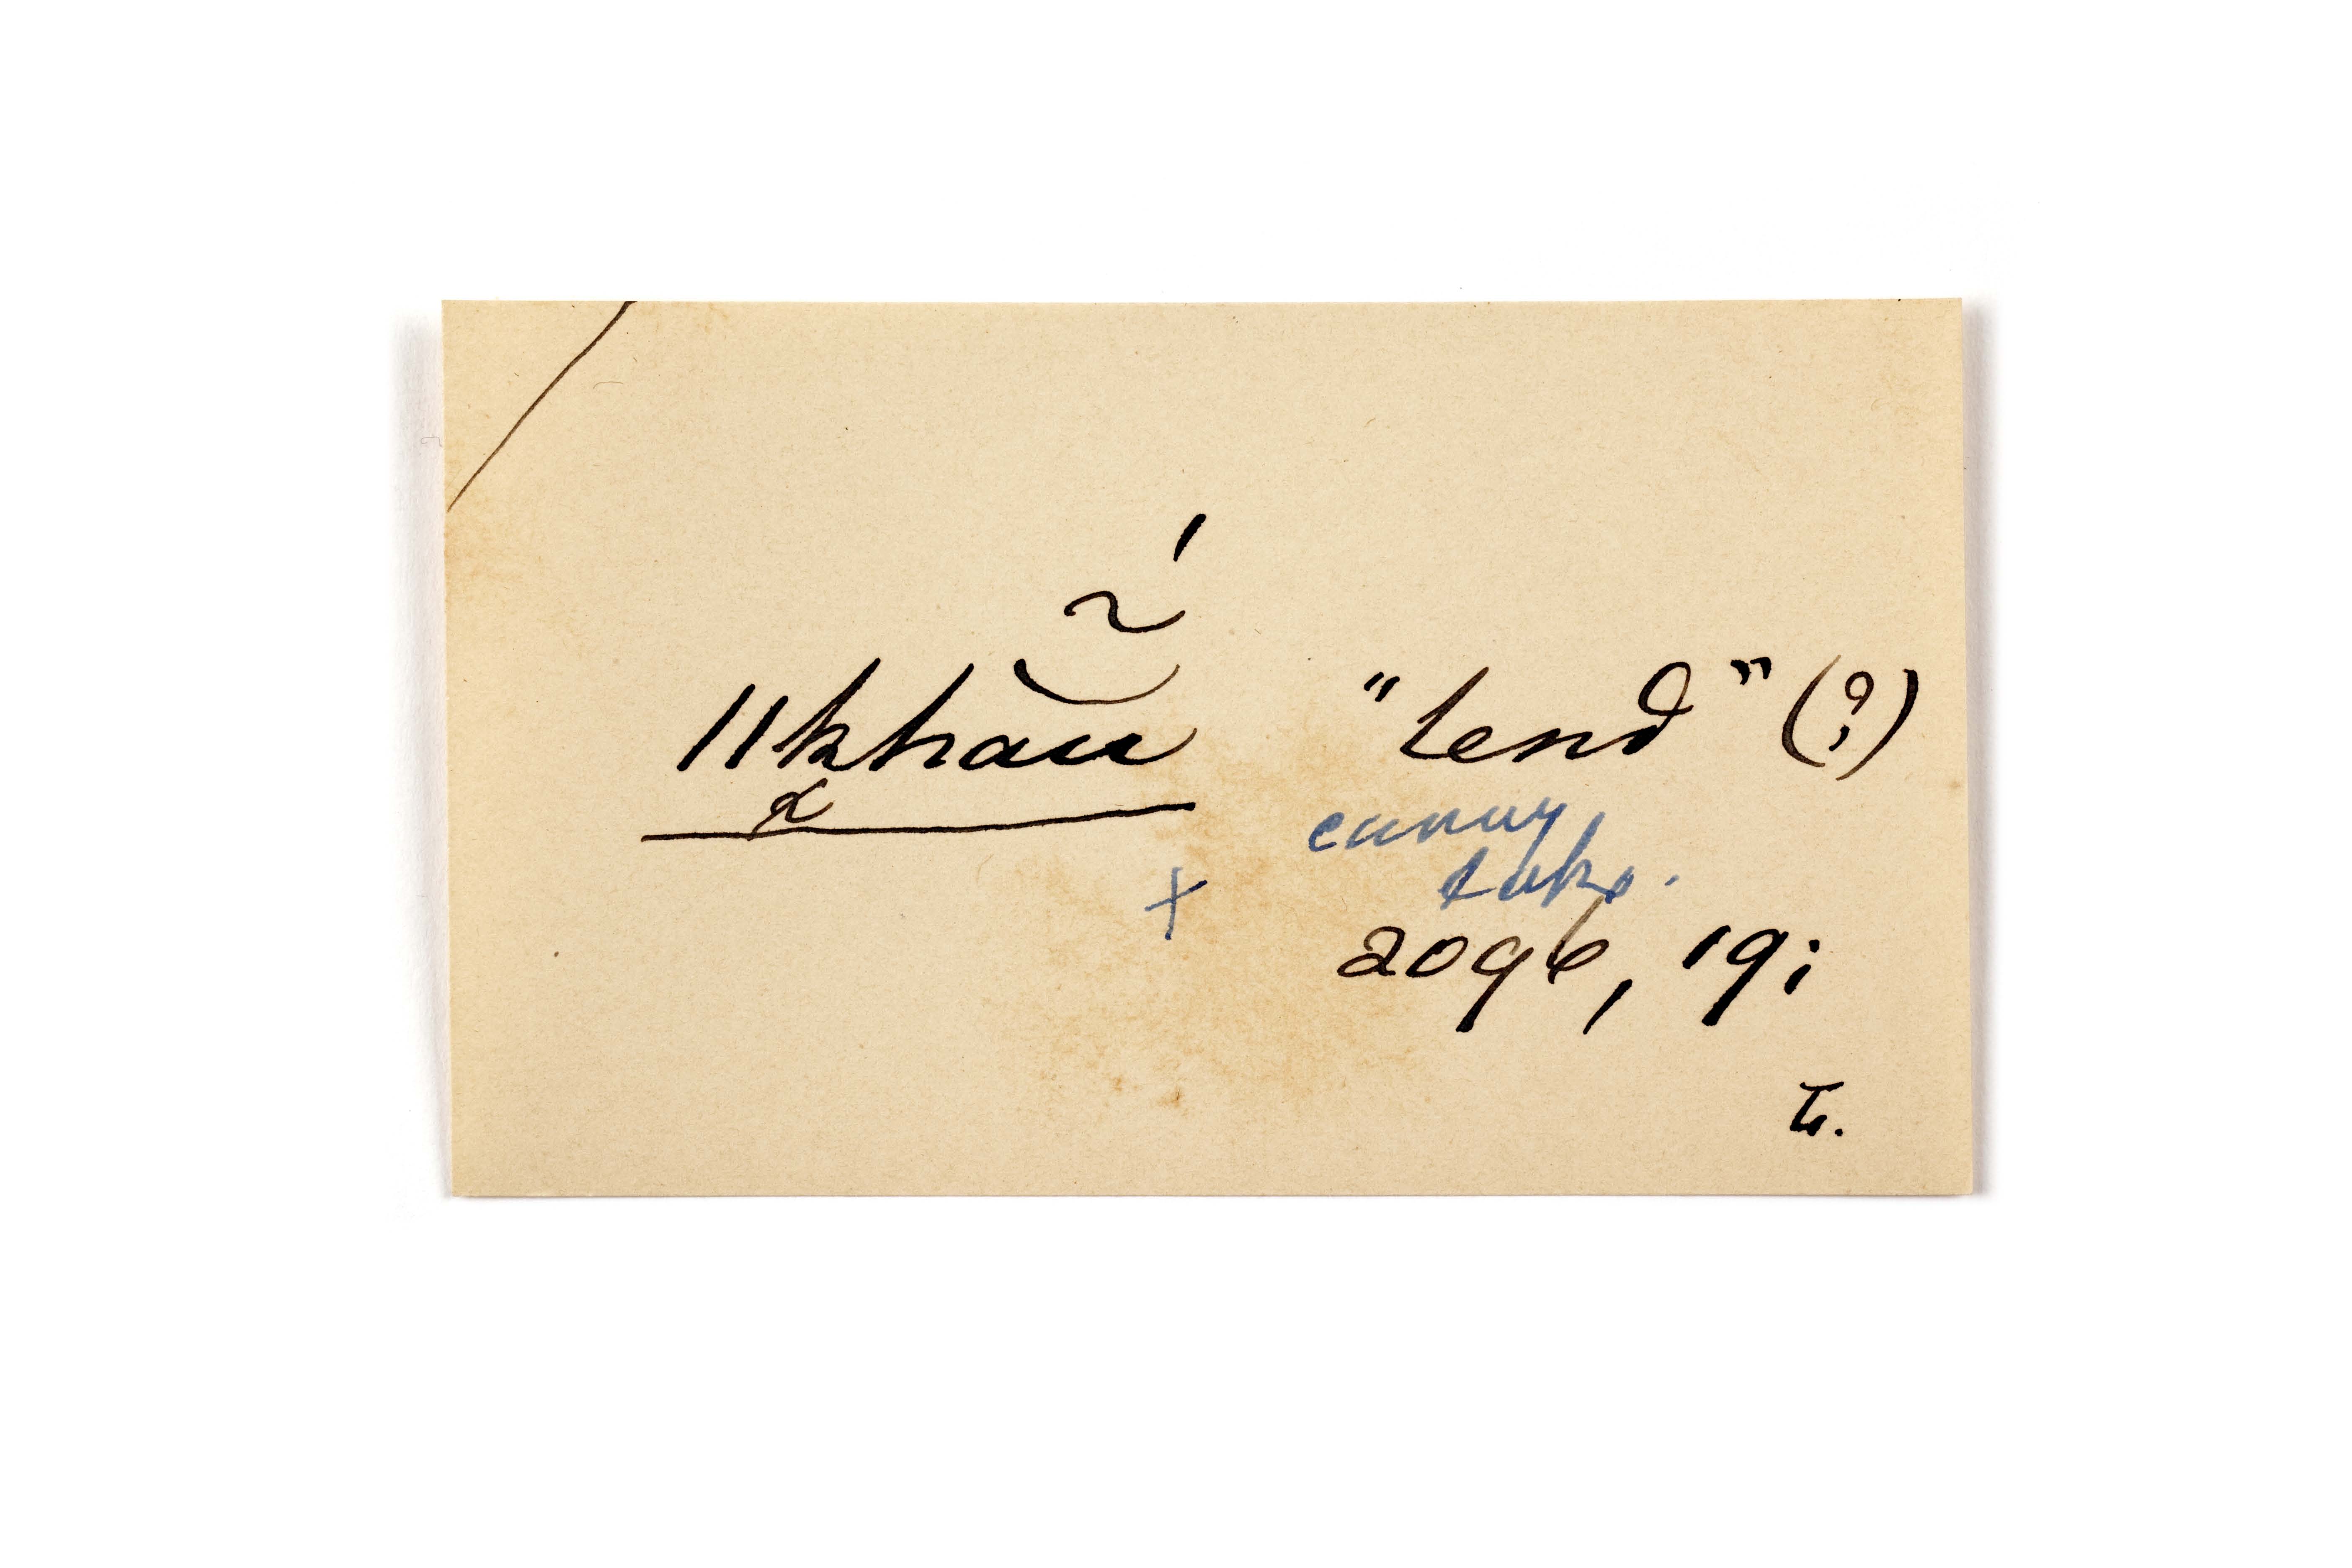 ǁkhaũ̆́ "lend" (?)
carry
take.
+
2096, 19;
L.